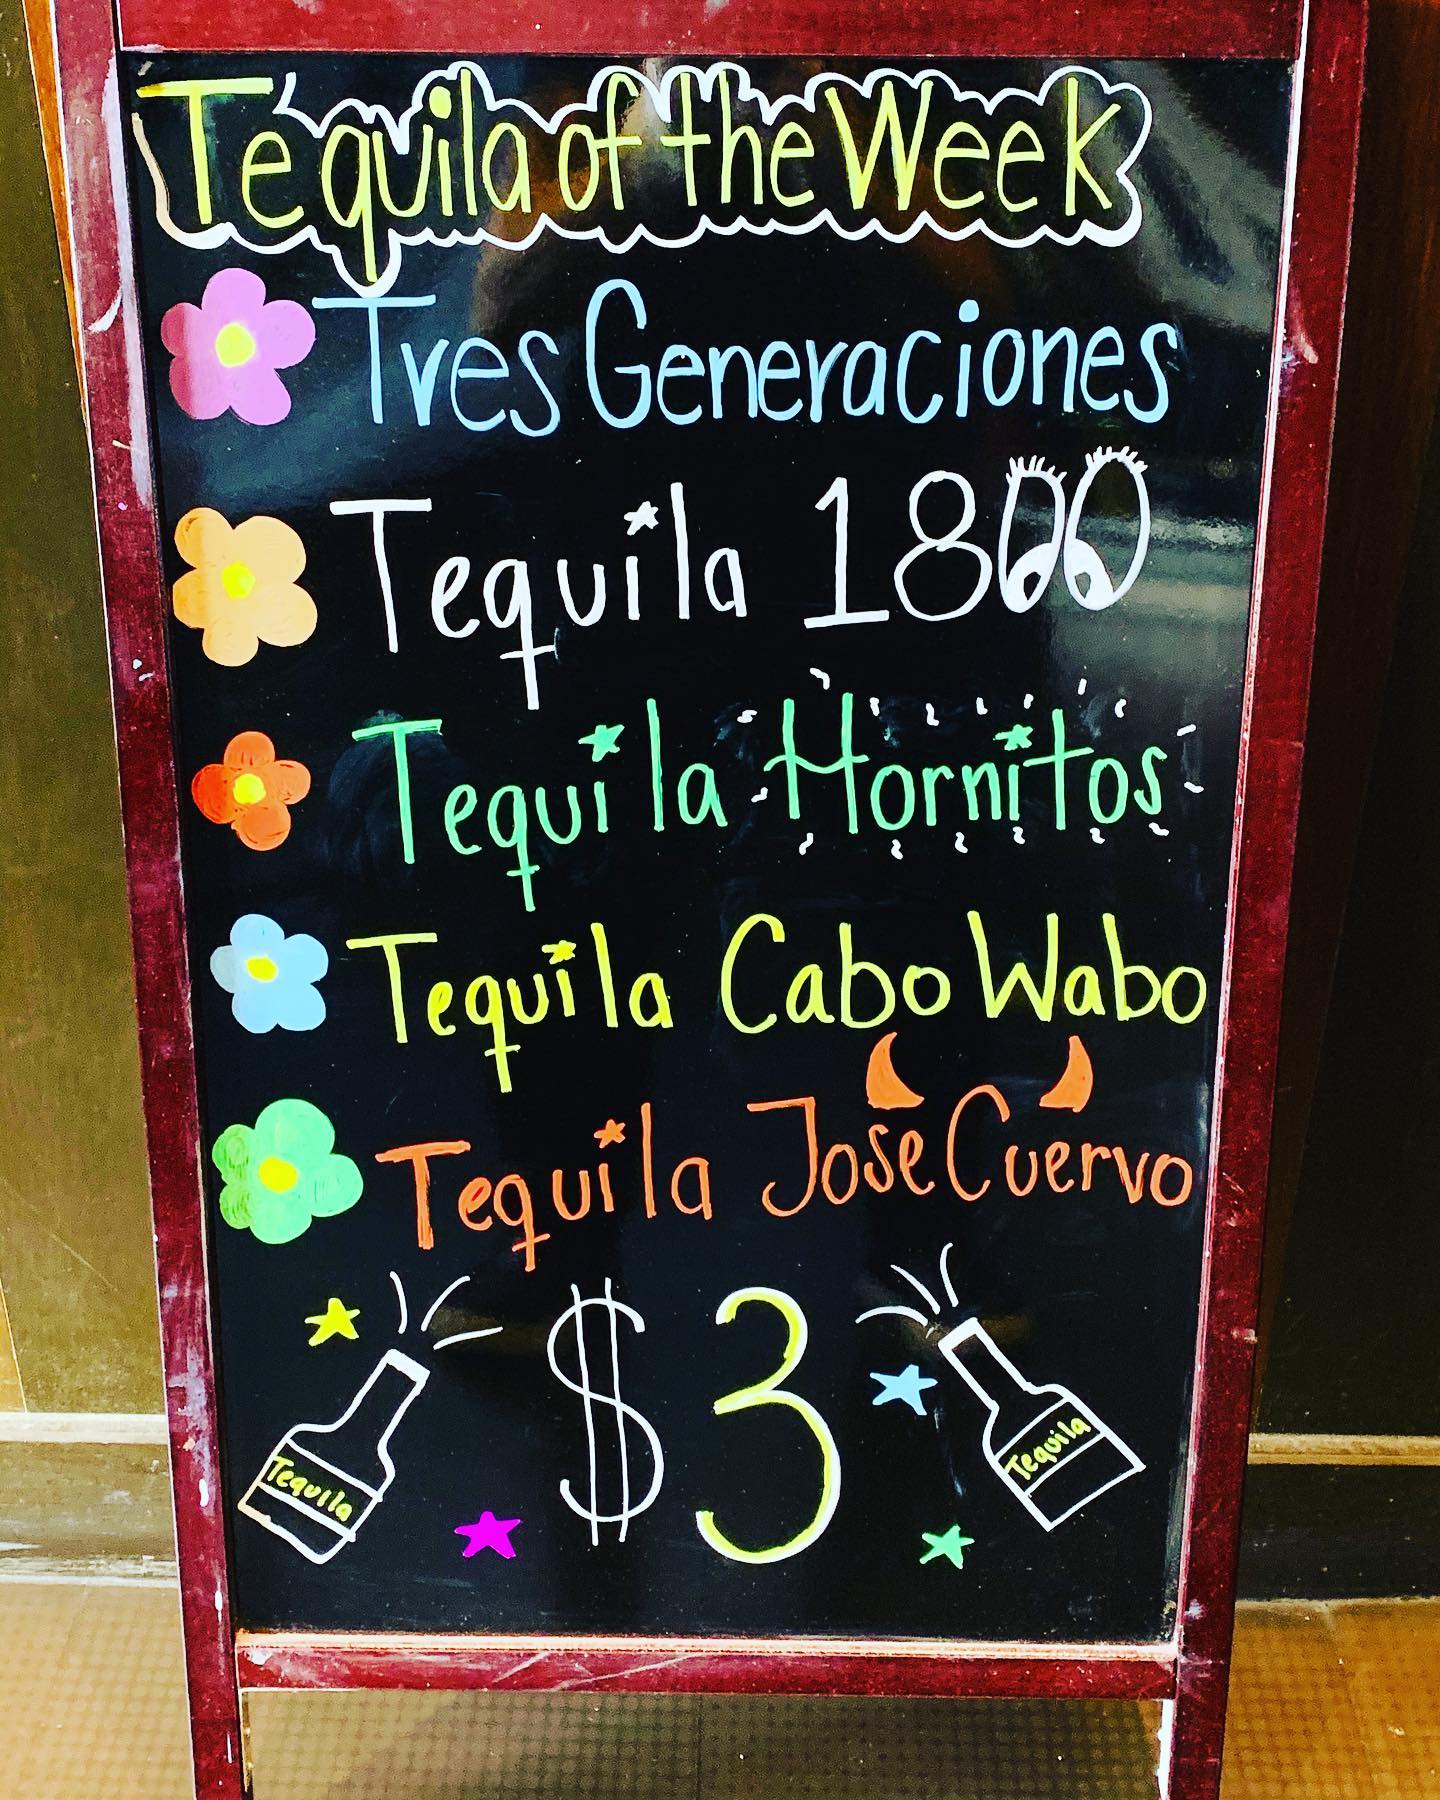 Tequila of the Week
Tres Generaciones
Tequila 1800
Tequila Hornitos
Tequila Cabo Wabo
Tequila Jose Cuervo
$3
Tequila
Tequila